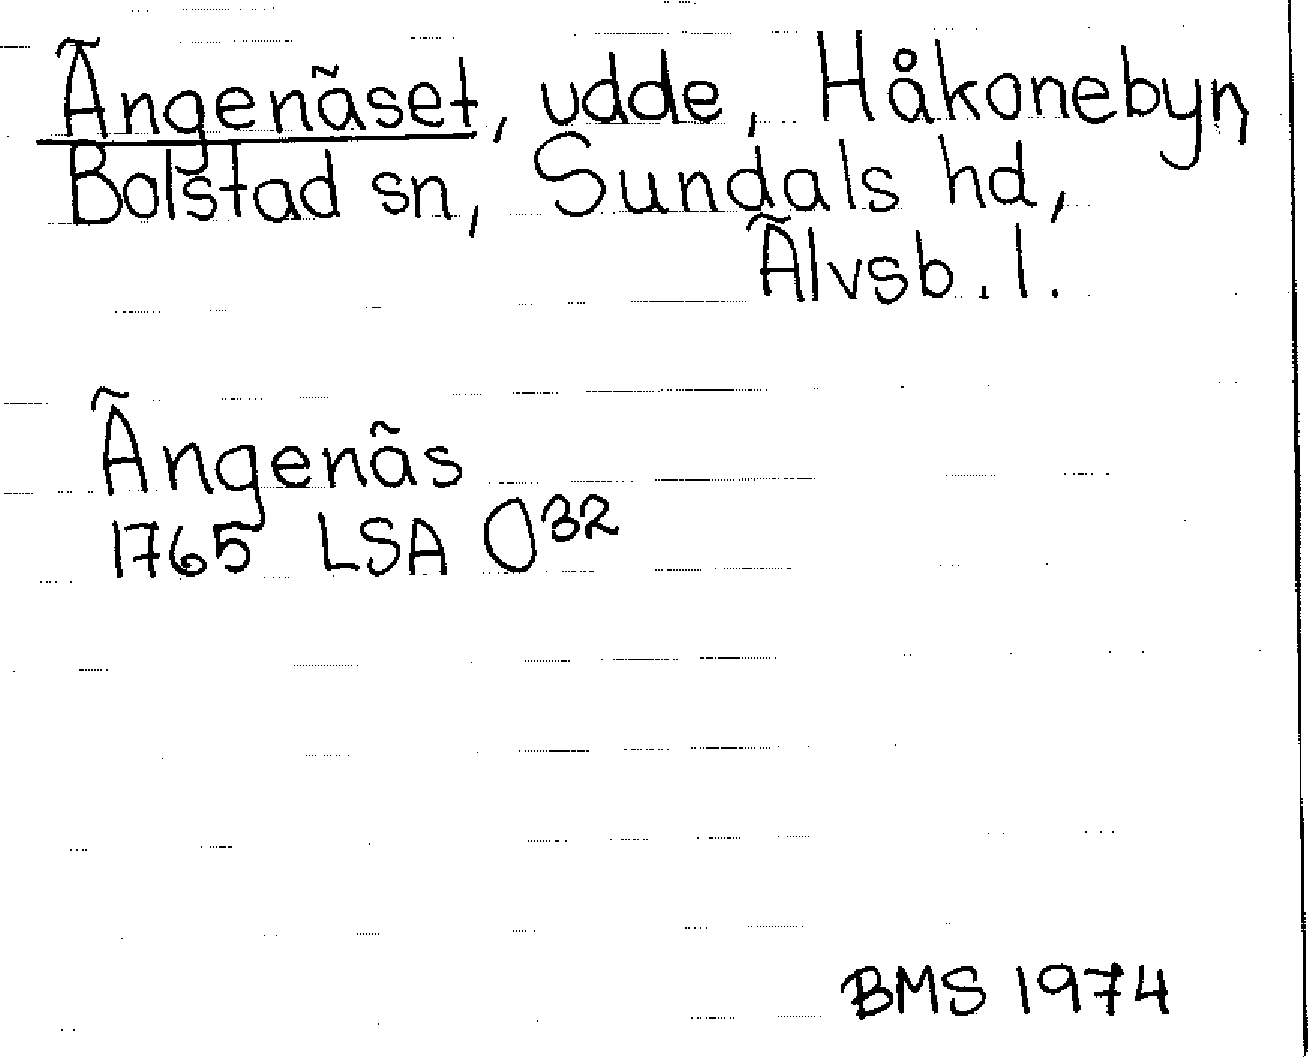 Ängenäset, udde, Håkonebyn
Bolstad sn, Sundals hd,
Älvsb. l.
Ängenäs
1765 LSA O32
BMS 1974